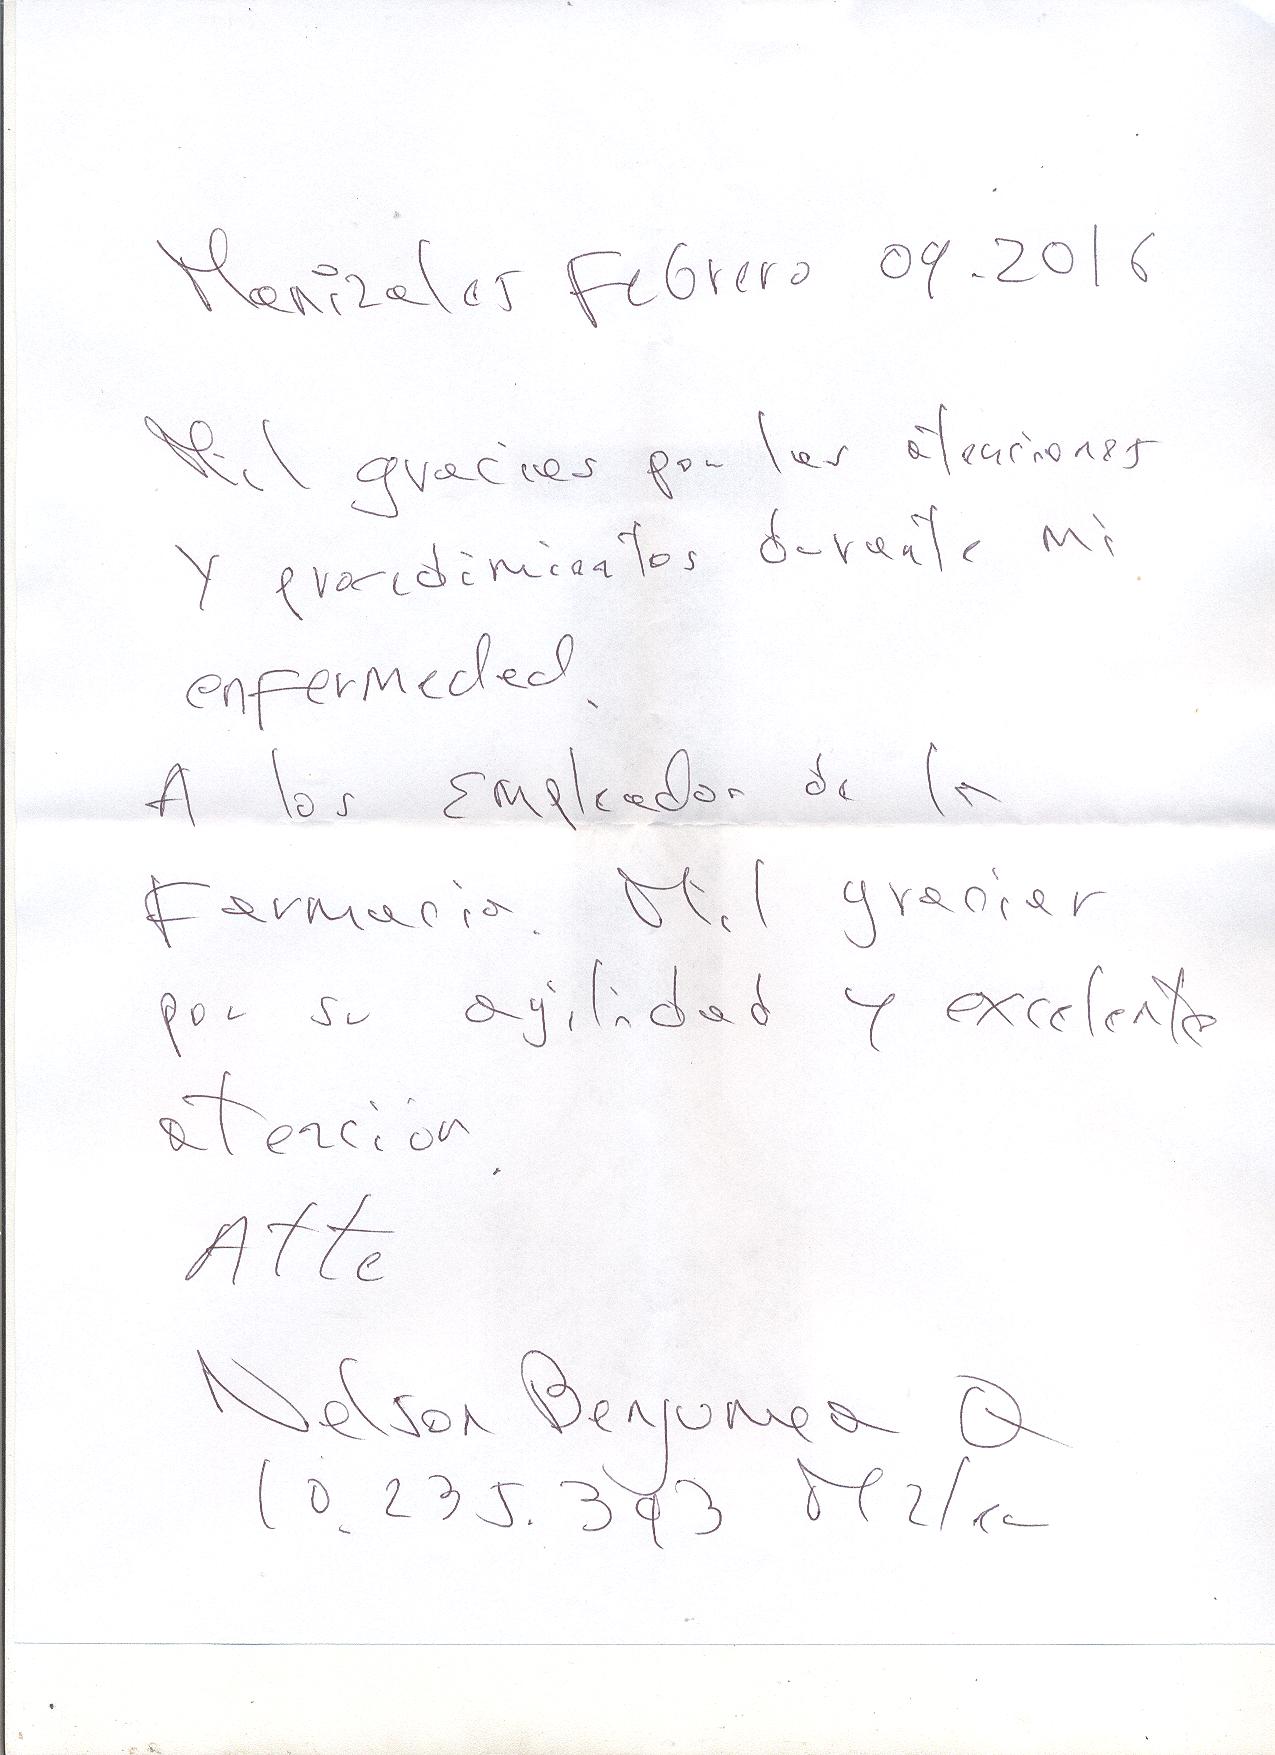 Manizales Febrero 09.2016
Mil gracias por las atenciones
Y procedimientos durante mi
enfermedad.
A los Empleados de la
Farmacia. Mil gracias
por su agilidad y excelente
atención.
Atte
Nelson Benjumea Q
10.235.393 Mzles